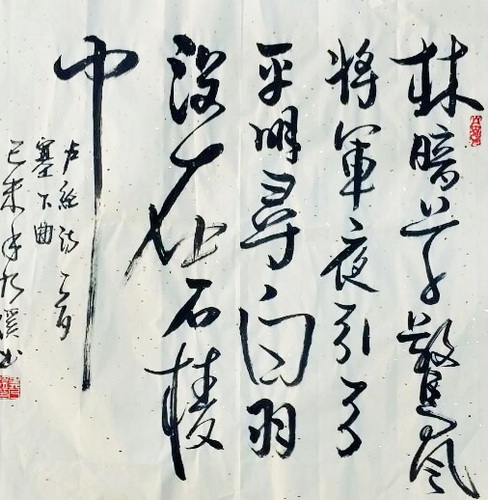 林暗草驚風
將軍夜引弓
平明尋白羽
没在石棱
中
卢纶诗一首
塞下曲
己未年